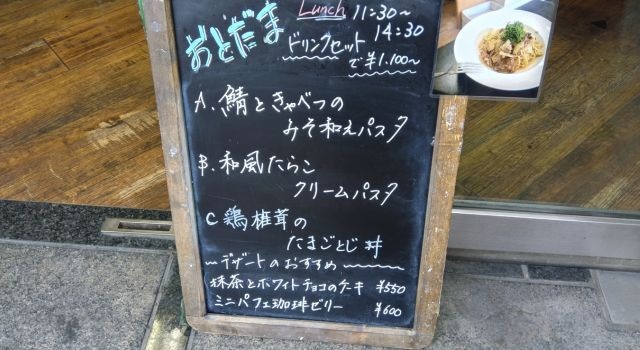 おとだま
Lunch 11:30～
14:30
ドリンクセット
で¥1.100～
A. 鯖ときゃべつの
みそ和えパスタ
B. 和風たらこ
クリームパスタ
C 鶏椎茸の
たまごとじ丼
～デザートのおすすめ～
抹茶とホワイトチョコのケーキ ¥550
ミニパフェ珈琲ゼリー ¥600